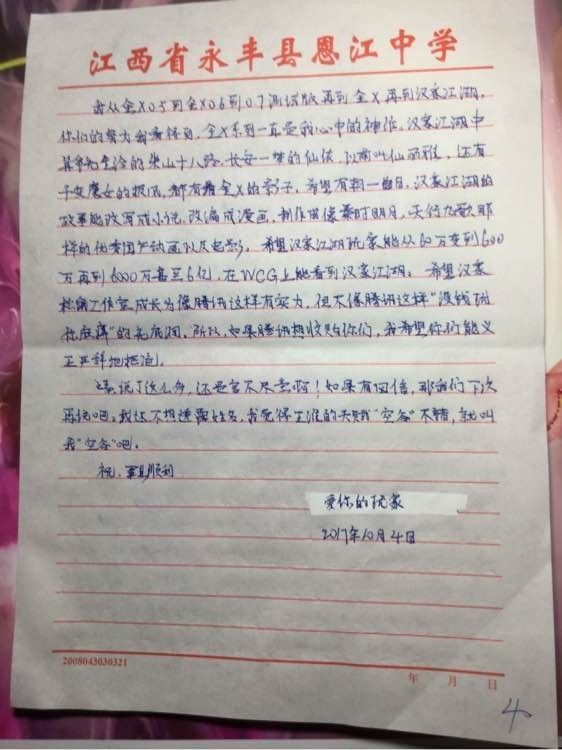 江西省永丰县恩江中学
我从金X0.5到金X0.6到0.7测试版再到金X再到汉家江湖,
你们的努力我看得见,金X系列一直是我心中的神作。汉家江湖中
长安一梦的仙侠,以前叫仙丽雅,还有
的投凤,都有着金X的影子,希望有朝一日,汉家江湖的
故事能改写成小说,改编成漫画,制作成像秦时明月,天行九歌那
样的优秀国产动画以及电影,希望汉家江湖玩家能从60万变到600
万再到6000万甚至6亿,在WCG上能看到汉家江湖。希望汉家
松鼠工作室成长为像腾讯这样有实力,但不像腾讯这样"没钱玩
你麻痹"的无底洞,所以,如果腾讯想收购你们,我希望你们能义
正严辞地拒绝。
说了这么多,还是言不尽意啊!如果有回信,那我们下次
再说吧,我还不想透露姓名,我觉得王维的天赋"空备"不错,就叫
我"空备"吧。
祝:事事顺利
爱你的玩家
2017年10月4日
2008043030321
年 月 日
4